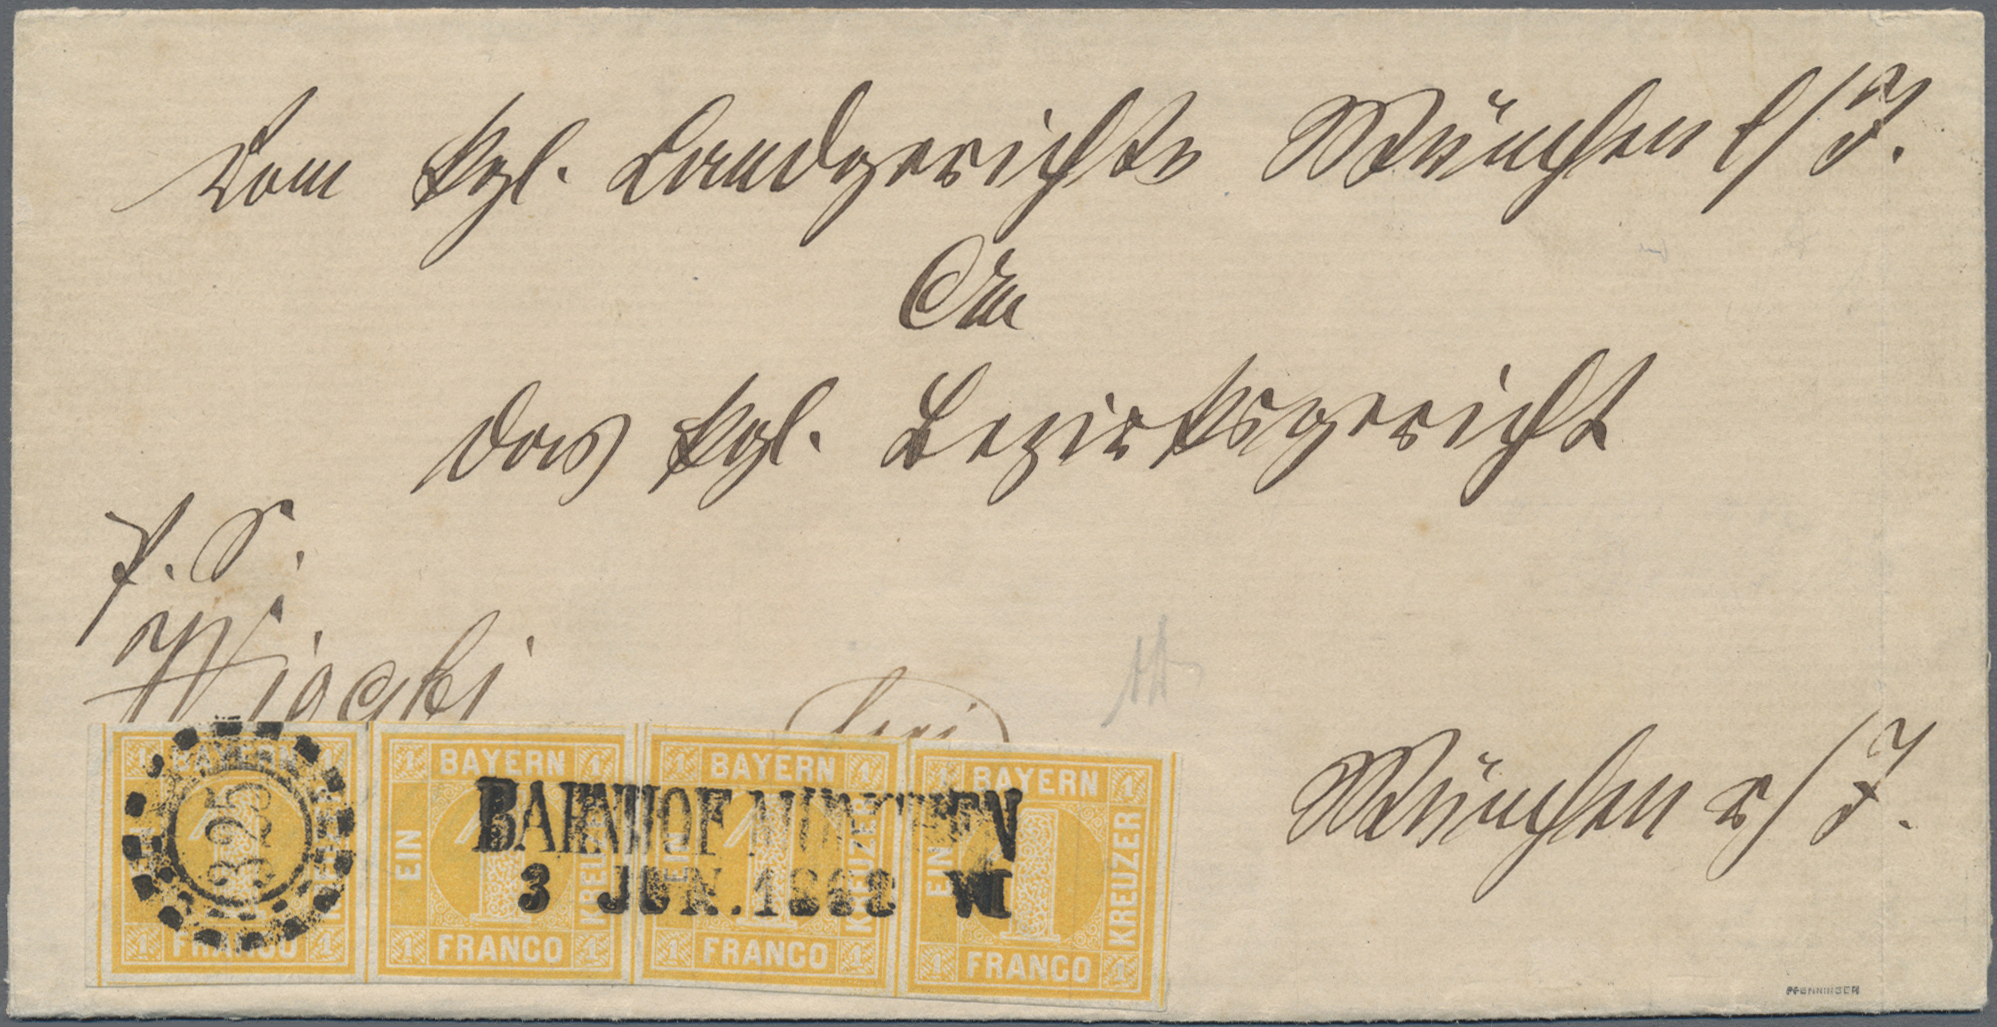 Vom kgl. Landgerichte München l/I.
An
das kgl. Bezirksgericht
P. S.
frei
München r/I.
1 BAYERN 1
EIN KREUZER
1 FRANCO 1
325
1 BAYERN 1
EIN KREUZER
1 FRANCO 1
1 BAYERN 1
EIN KREUZER
1 FRANCO 1
1 BAYERN 1
EIN KREUZER
1 FRANCO 1
BAHNHOF MÜNCHEN
3 JUN. 1868 VI
PFENNINGER